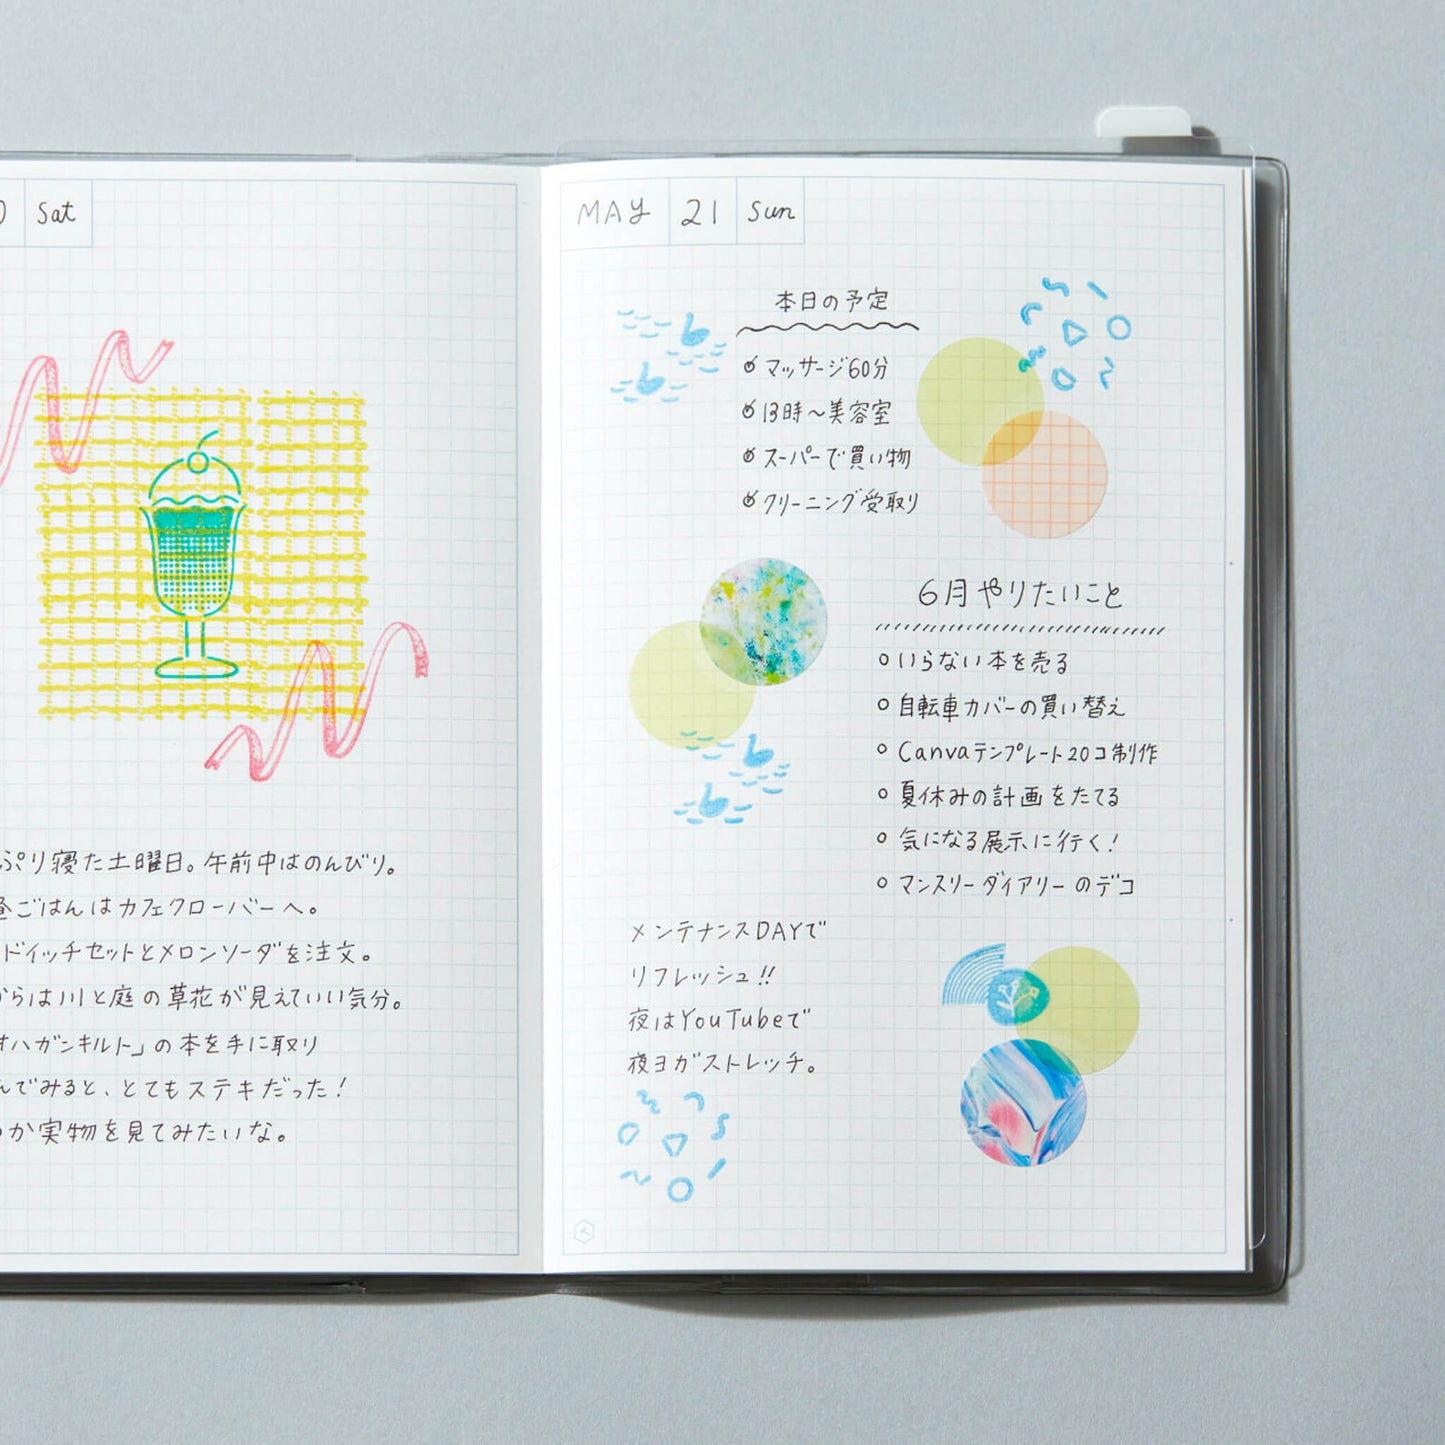 Sat
ぷり寝た土曜日。午前中はのんびり。
昼ごはんはカフェクローバーへ。
ドイッチセットとメロンソーダを注文。
からは川と庭の草花が見えていい気分。
オハガンキルト」の本を手に取り
んでみると、とてもステキだった!
か実物を見てみたいな。
MAY 21 Sun
本日の予定
マッサージ60分
13時~美容室
スーパーで買い物
クリーニング受取り
6月やりたいこと
いらない本を売る
自転車カバーの買い替え
Canvaテンプレート20コ制作
夏休みの計画をたてる
気になる展示に行く!
マンスリーダイアリーのデコ
メンテナンスDAYで
リフレッシュ!!
夜はYouTubeで
夜ヨガストレッチ。